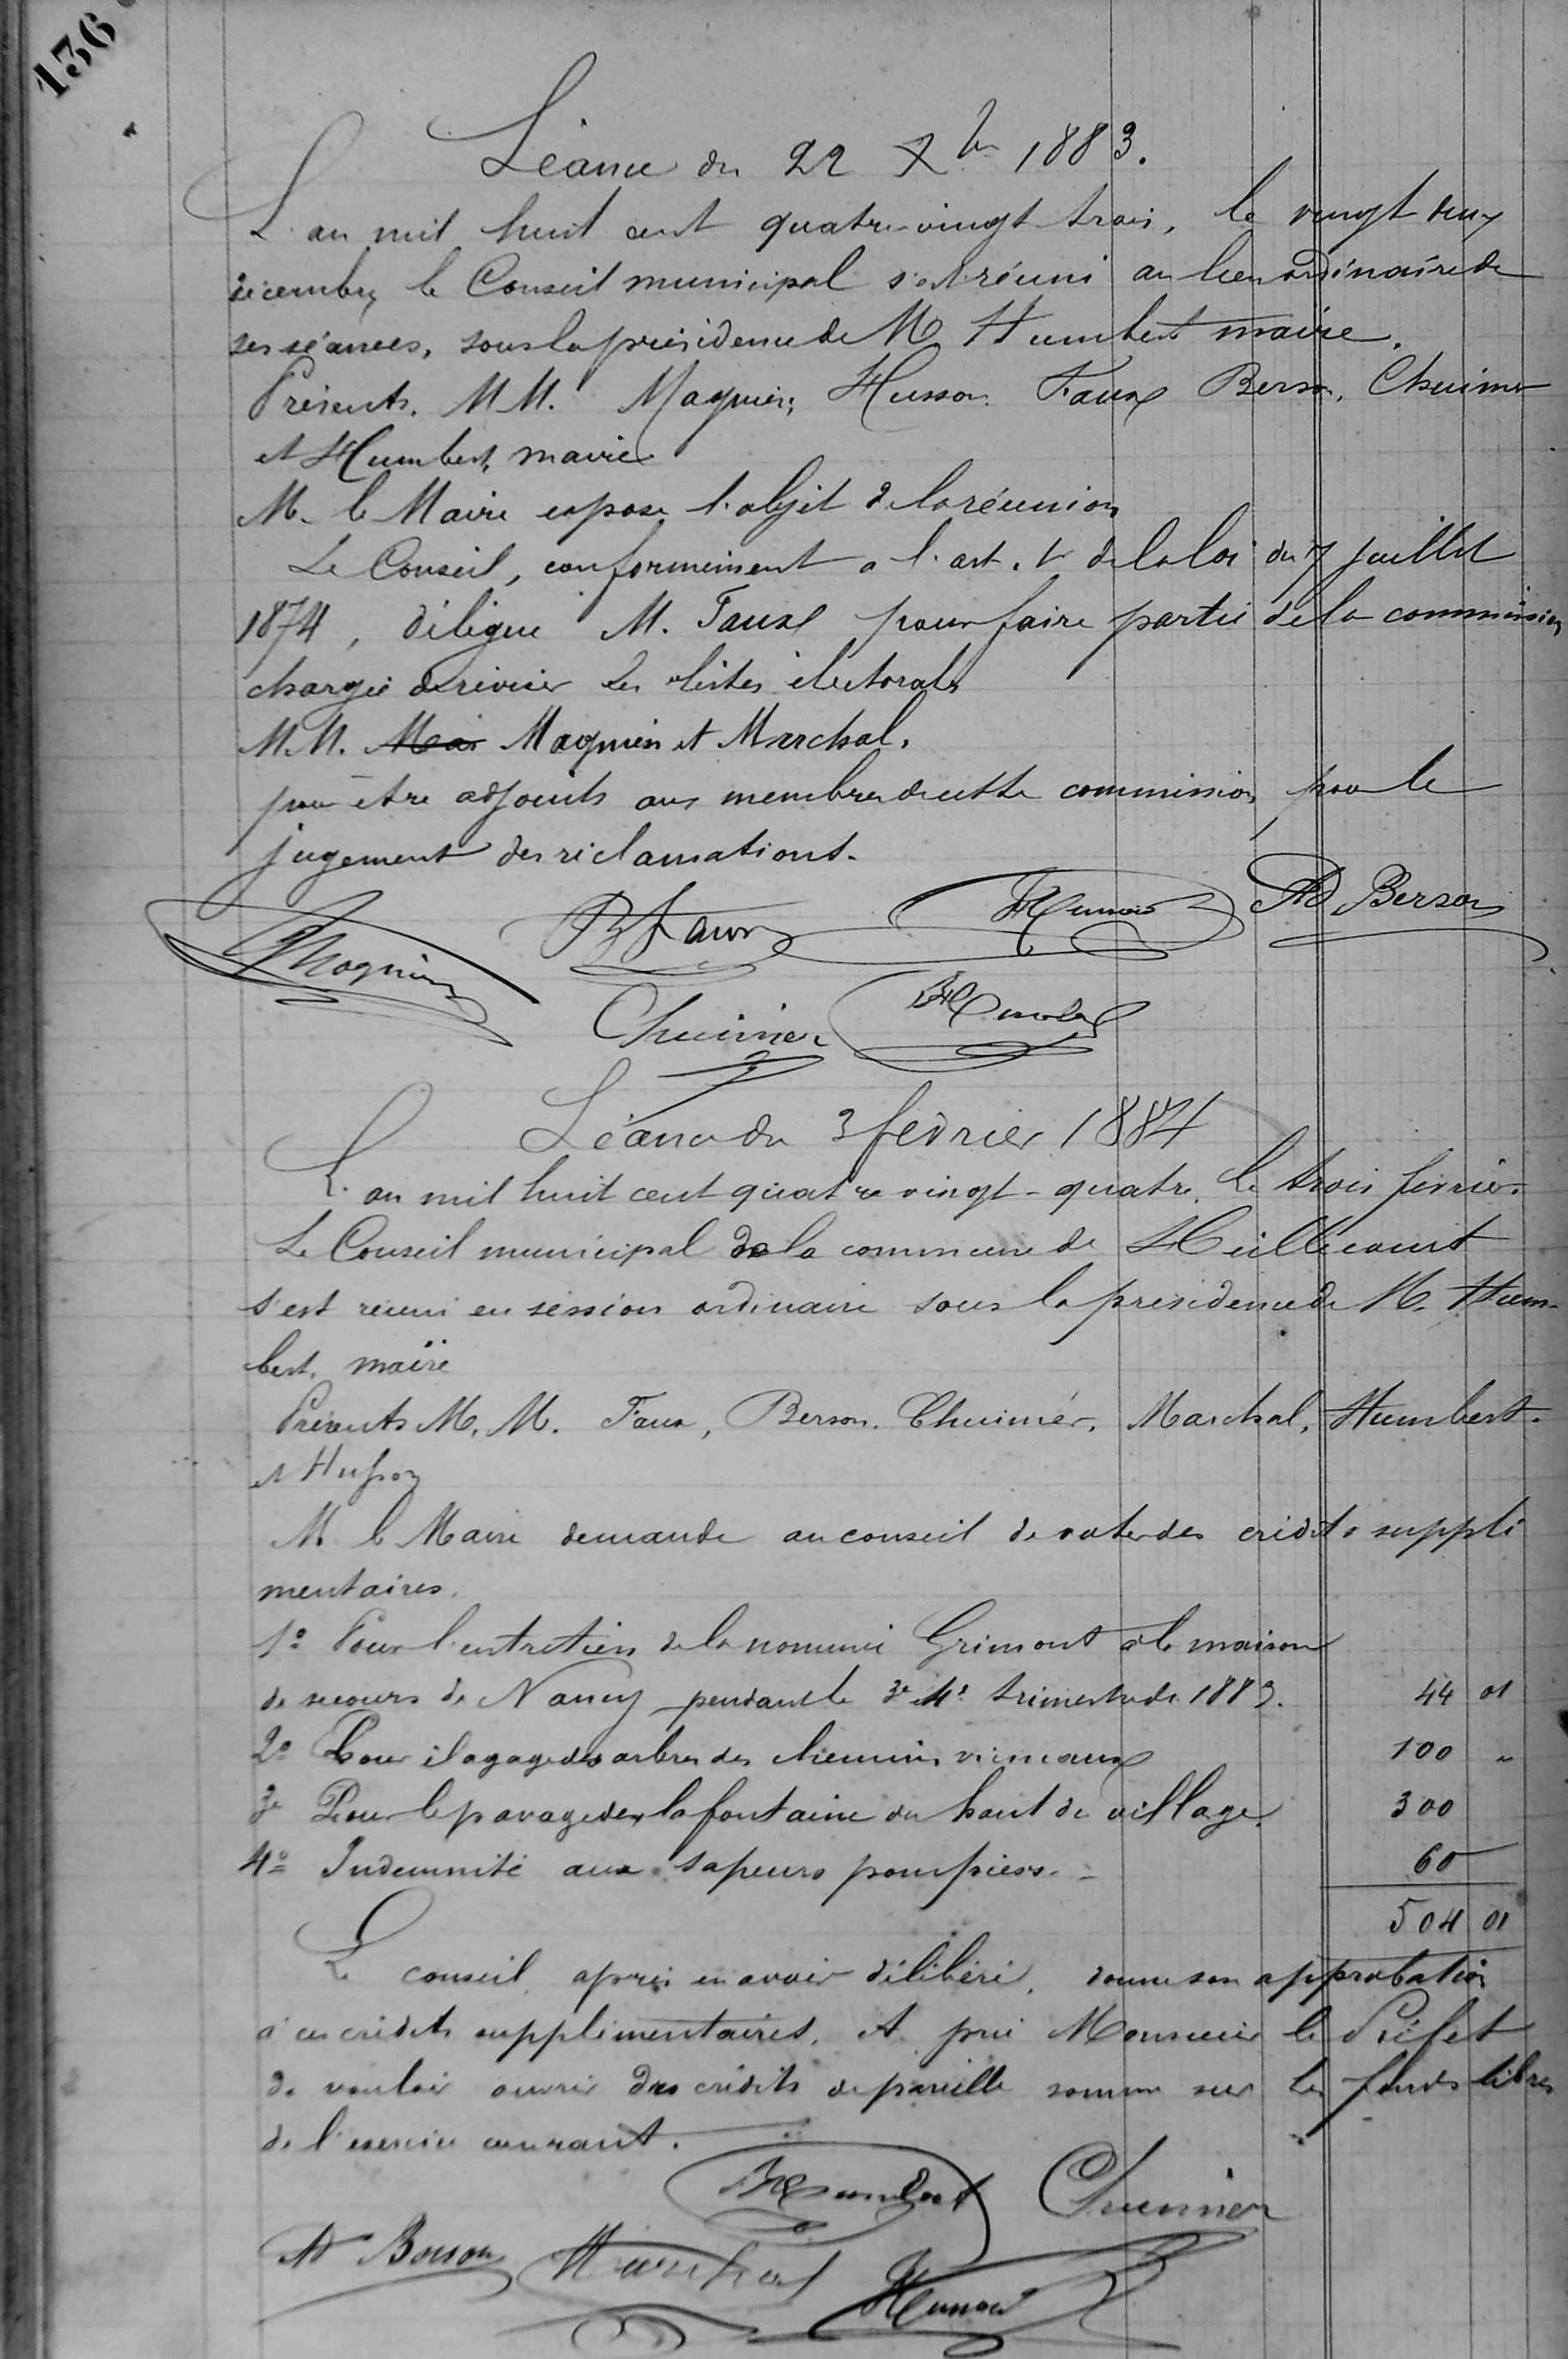 136
Séance du 22 Xbre 1883.
L'an mil huit cent quatre-vingt trois, le vingt deux
décembre, le Conseil municipal s'est réuni au lieu ordinaire de
ses séances, sous la présidence de M. Humbert maire.
Présents. MM. Magnien, Husson, Faux, Berson, Chuimer
et Humbert, maire
M. le Maire expose l'objet de la réunion
Le Conseil, conformément à l'art. 1er de la loi du 7 juillet
1874, délègue M. Faux pour faire partie de la commission
chargée de reviser les listes électorales
MM. Mar Magnien et Marchal,
pour être adjoints aux membres de cette commission, pour le
jugement des réclamations.
Magnien B Faux Husson AD Berson
Chuimer Humbert
Séance du 3 février 1884
L'an mil huit cent quatre vingt-quatre, le trois février
Le Conseil municipal de la commune de Heillecourt
s'est réuni en session ordinaire sous la présidence de M. Hum-
bert, maire
Présents M. M. Faux, Berson, Chuimér, Marchal, Humbert.
et Husson
M. le Maire demande au conseil de voter des crédits supplé
mentaires.
1º Pour l'entretien de la nommée Grimont à la maison
de secours de Nancy pendant le 3e 4e trimestre de 1883. 44 01
2º Pour élagage des arbres des chemins vicinaux 100 "
3e Pour le pavage de la fontaine du haut du village. 300
4º Indemnité aux sapeurs pompiers. - 60
504 01
Le conseil, après en avoir délibéré, donne son approbation
à ces crédits supplémentaires, et prie Monsieur le Préfet
de vouloir ouvrir des crédits de pareille somme sur les fonds libres
de l'exercice courant.
Humbert Chuimer
AD Berson Marchal Husson